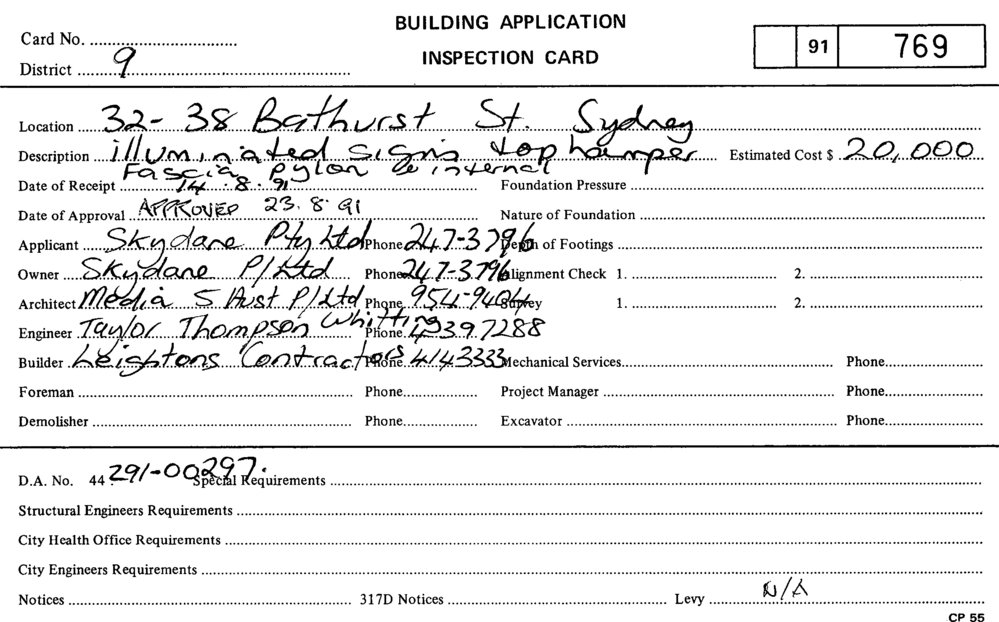 BUILDING APPLICATION
INSPECTION CARD
Card No.
District 9
91 769
Location 32-38 Bathurst St. Sydney
Description illuminated signs top hamper Estimated Cost $ 20,000
Fascia, pylon & internal
Date of Receipt 14.8.91 Foundation Pressure
Date of Approval APPROVED 23.8.91 Nature of Foundation
Applicant Skydane Pty Ltd Phone 247-3796 Depth of Footings
Owner Skydane P/Ltd Phone 247-3796 Alignment Check 1. 2.
Architect Media 5 Aust P/Ltd Phone 954-9404 Survey 1. 2.
Engineer Taylor Thompson Whitting Phone 4397288
Builder Leightons Contractors Phone 4143333 Mechanical Services Phone
Foreman Phone Project Manager Phone
Demolisher Phone Excavator Phone
D.A. No. 44 291-00297. Special Requirements
Structural Engineers Requirements
City Health Office Requirements
City Engineers Requirements
Notices 317D Notices Levy N/A
CP 55